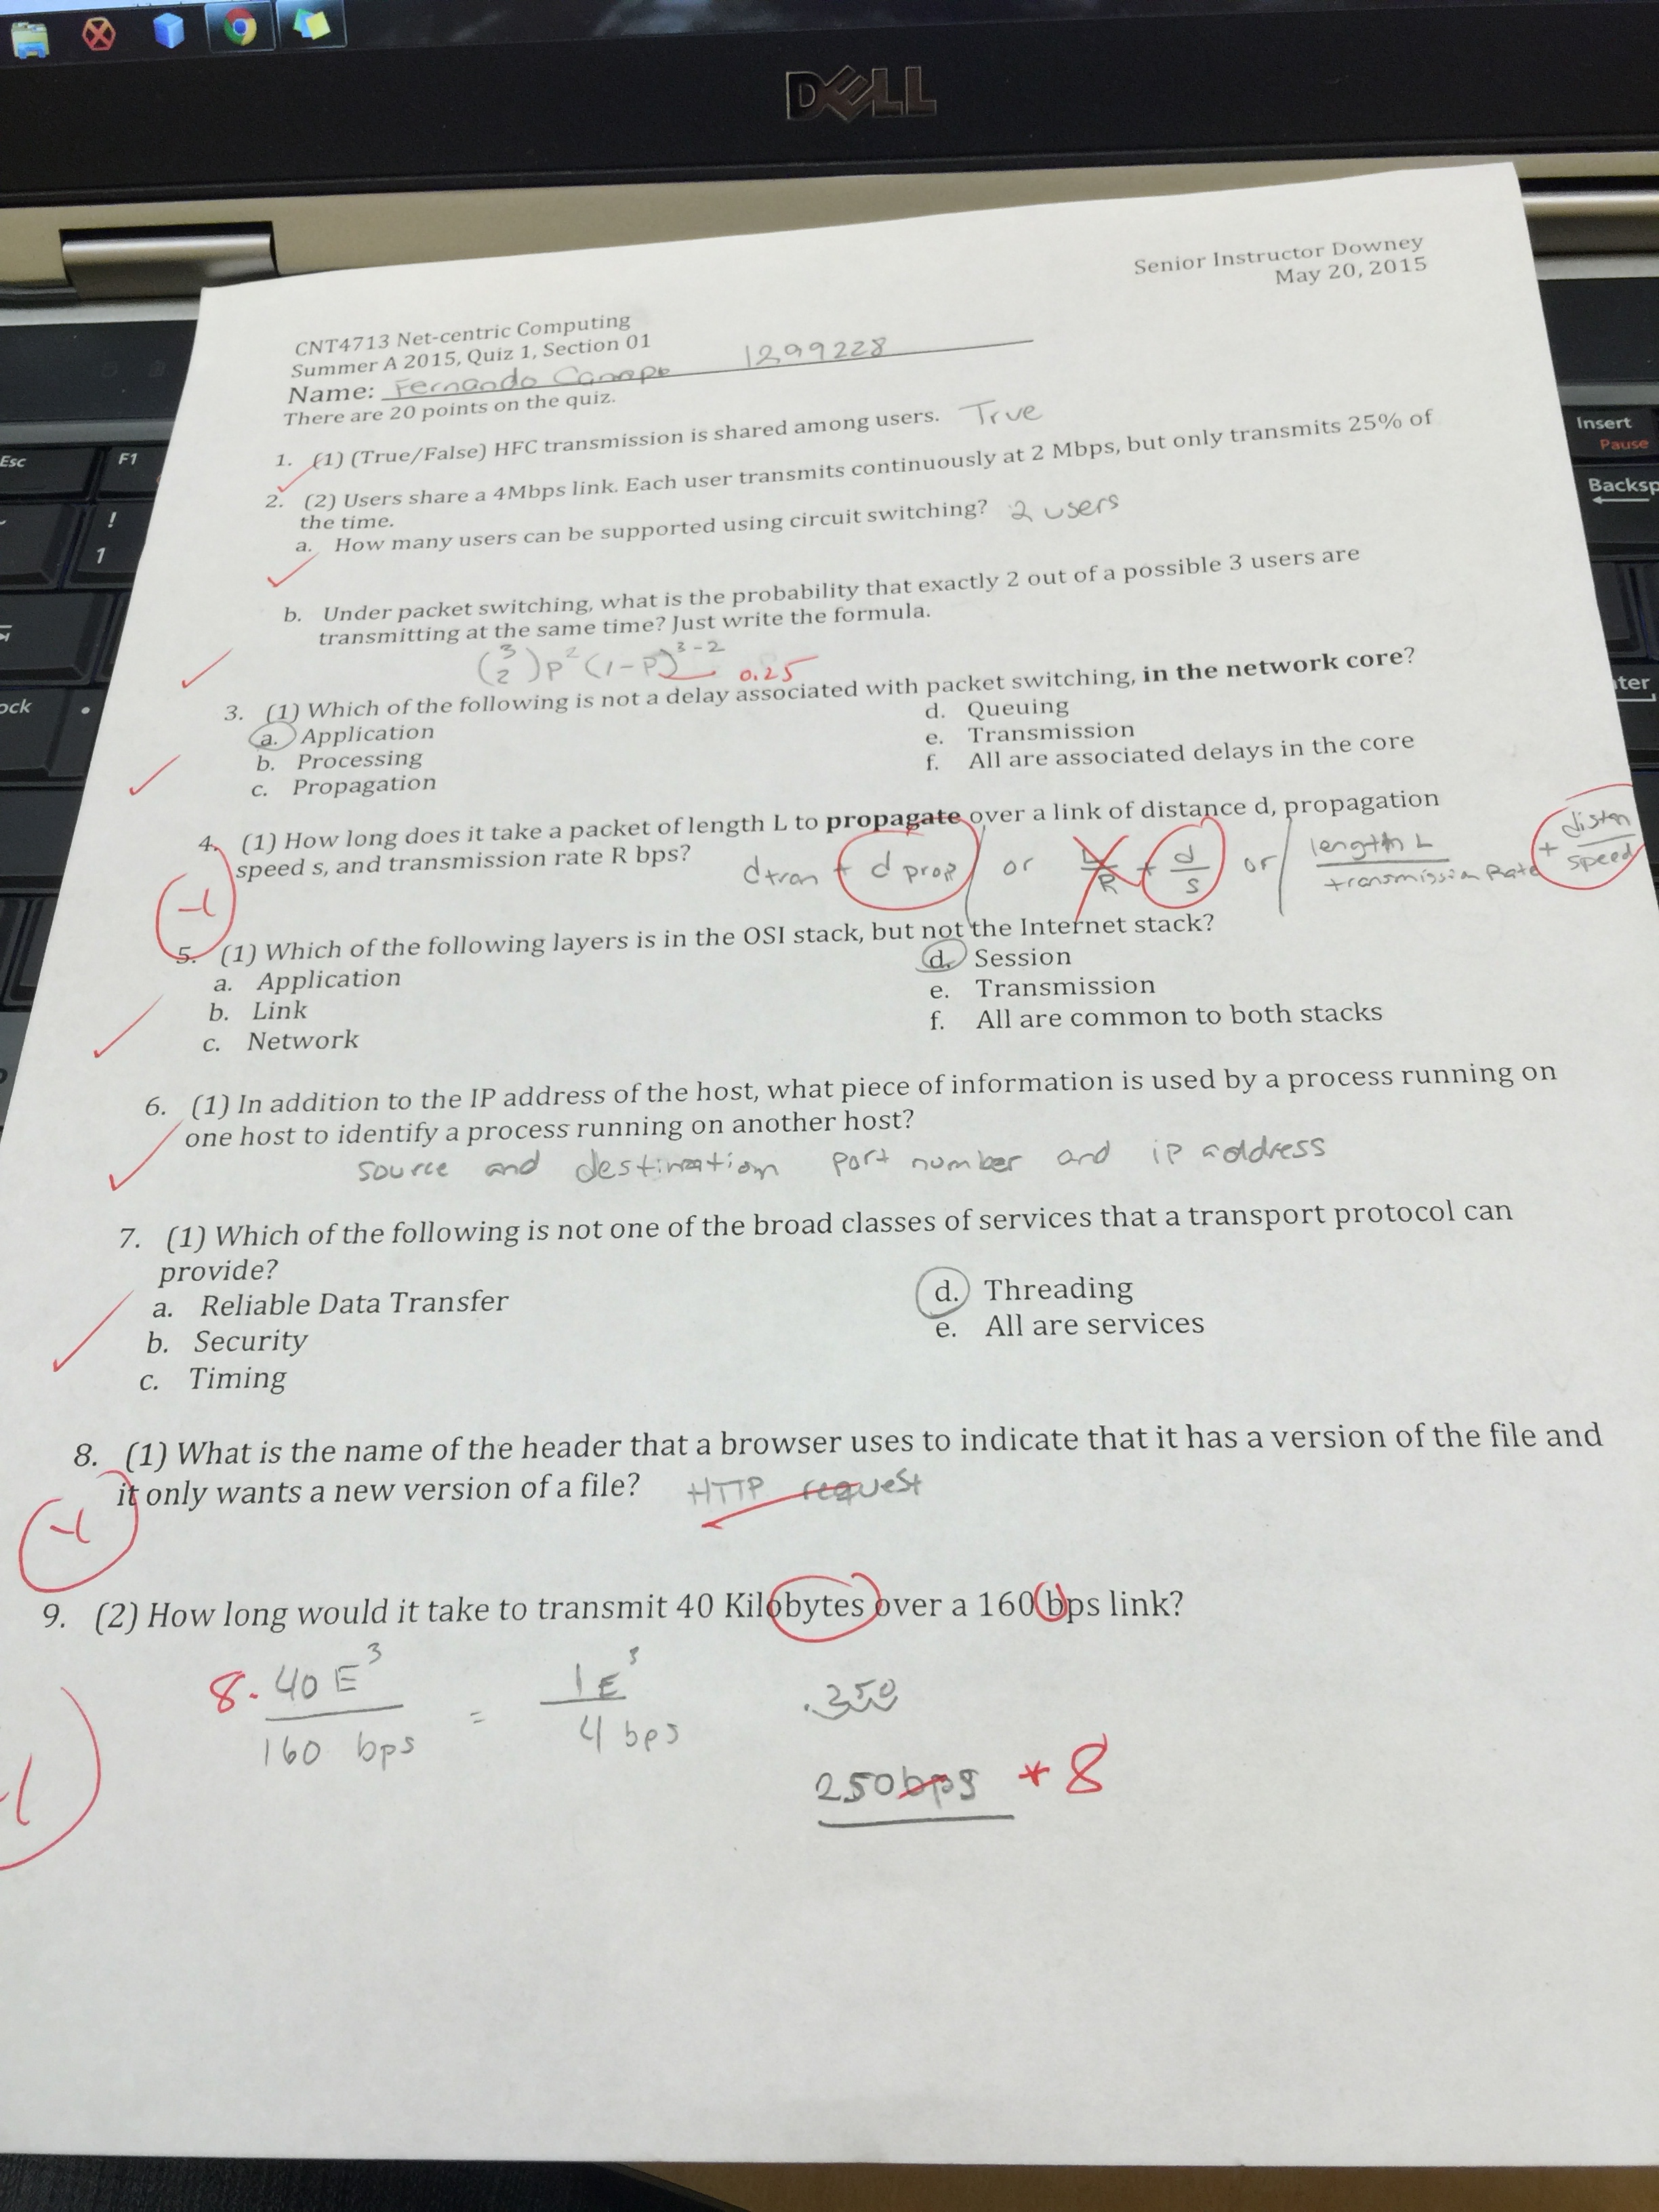 DELL
Senior Instructor Downey
May 20, 2015
CNT4713 Net-centric Computing
Summer A 2015, Quiz 1, Section 01
Name: Fernando 1299228
There are 20 points on the quiz.
1. (1) (True/False) HFC transmission is shared among users. True
2. (2) Users share a 4Mbps link. Each user transmits continuously at 2 Mbps, but only transmits 25% of
the time.
a. How many users can be supported using circuit switching? 2 users
b. Under packet switching, what is the probability that exactly 2 out of a possible 3 users are
transmitting at the same time? Just write the formula.
(3 2) p^2 (1-p)^3-2 0.25
3. (1) Which of the following is not a delay associated with packet switching, in the network core?
a. Application
b. Processing
c. Propagation
d. Queuing
e. Transmission
f. All are associated delays in the core
4. (1) How long does it take a packet of length L to propagate over a link of distance d, propagation
speed s, and transmission rate R bps? d tran + d prop or L/R + d/s or length L / transmission Rate + distan / speed
-1
5. (1) Which of the following layers is in the OSI stack, but not the Internet stack?
a. Application
b. Link
c. Network
d. Session
e. Transmission
f. All are common to both stacks
6. (1) In addition to the IP address of the host, what piece of information is used by a process running on
one host to identify a process running on another host?
source and destination port number and ip address
7. (1) Which of the following is not one of the broad classes of services that a transport protocol can
provide?
a. Reliable Data Transfer
b. Security
c. Timing
d. Threading
e. All are services
8. (1) What is the name of the header that a browser uses to indicate that it has a version of the file and
it only wants a new version of a file? HTTP request
-1
9. (2) How long would it take to transmit 40 Kilobytes over a 160 bps link?
8. 40E^3 / 160 bps = 1E^3 / 4 bps
250bps * 8
-1
Esc
F1
!
1
Insert
Pause
Backsp